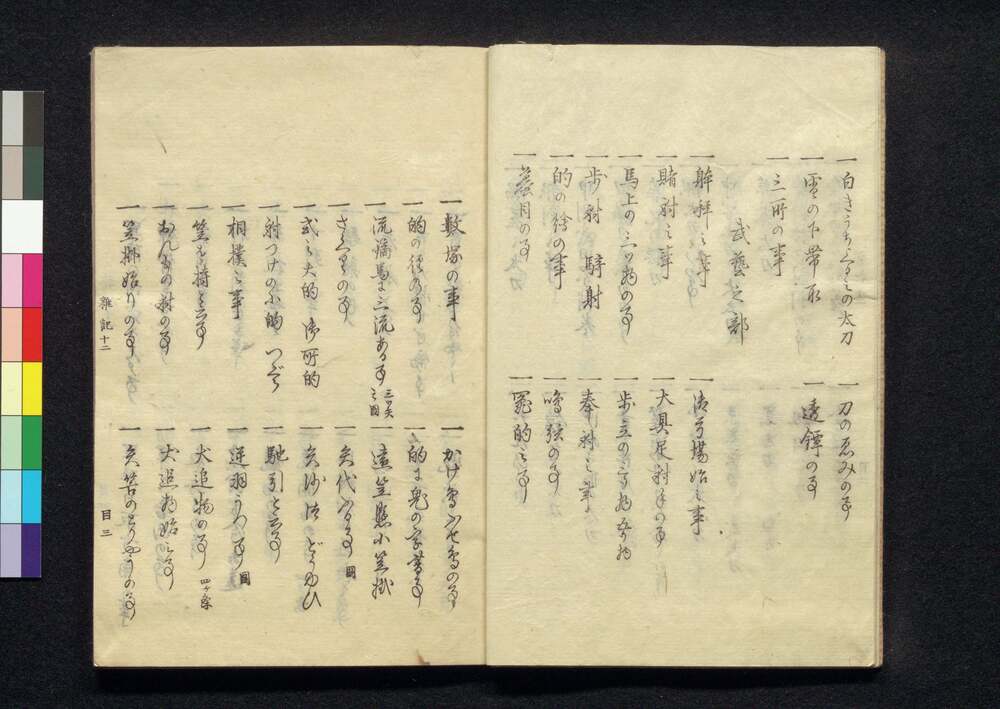 一 白きうちくゝミの太刀
一 刀のゑみの事
一 雲の下帯取
一 透鐔の事
一 三所の事
武藝之部
一 躰拝之事
一 御弓場始之事
一 賭射之事
一 大具足射手の事
一 馬上の三ツ物の事
一 歩立の三ツ物
一 歩射 騎射
一 奉射之事
一 的の繪の事
一 鳴弦の事
一 蟇目の事
一 罷的之事
一 數塚の事
一 かけ鳥ふせ鳥の事
一 的の径の事
一 的ま鬼の字書事
一 流鏑馬ま三流ある事
一 遠笠懸小笠掛
一 さくりの事
一 矢代ふる事 圖
一 式之大的 御所的
一 矢沙汰
一 射つけの小的 つゞら
一 馳引と云事
一 相撲之事
一 逆羽うつ事 圖
一 笠を持と云事
一 犬追物の事 四ケ条
一 の射の事
一 犬追物始之事
一 笠掛始りの事
一 矢筈のとりやうの事
雜記十二
目三